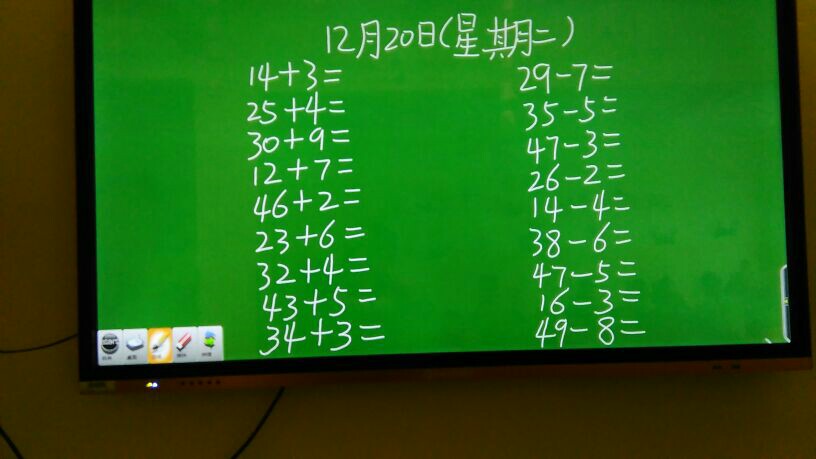 12月20日(星期二)
14+3= 29-7=
25+4= 35-5=
30+9= 47-3=
12+7= 26-2=
46+2= 14-4=
23+6= 38-6=
32+4= 47-5=
43+5= 16-3=
34+3= 49-8=